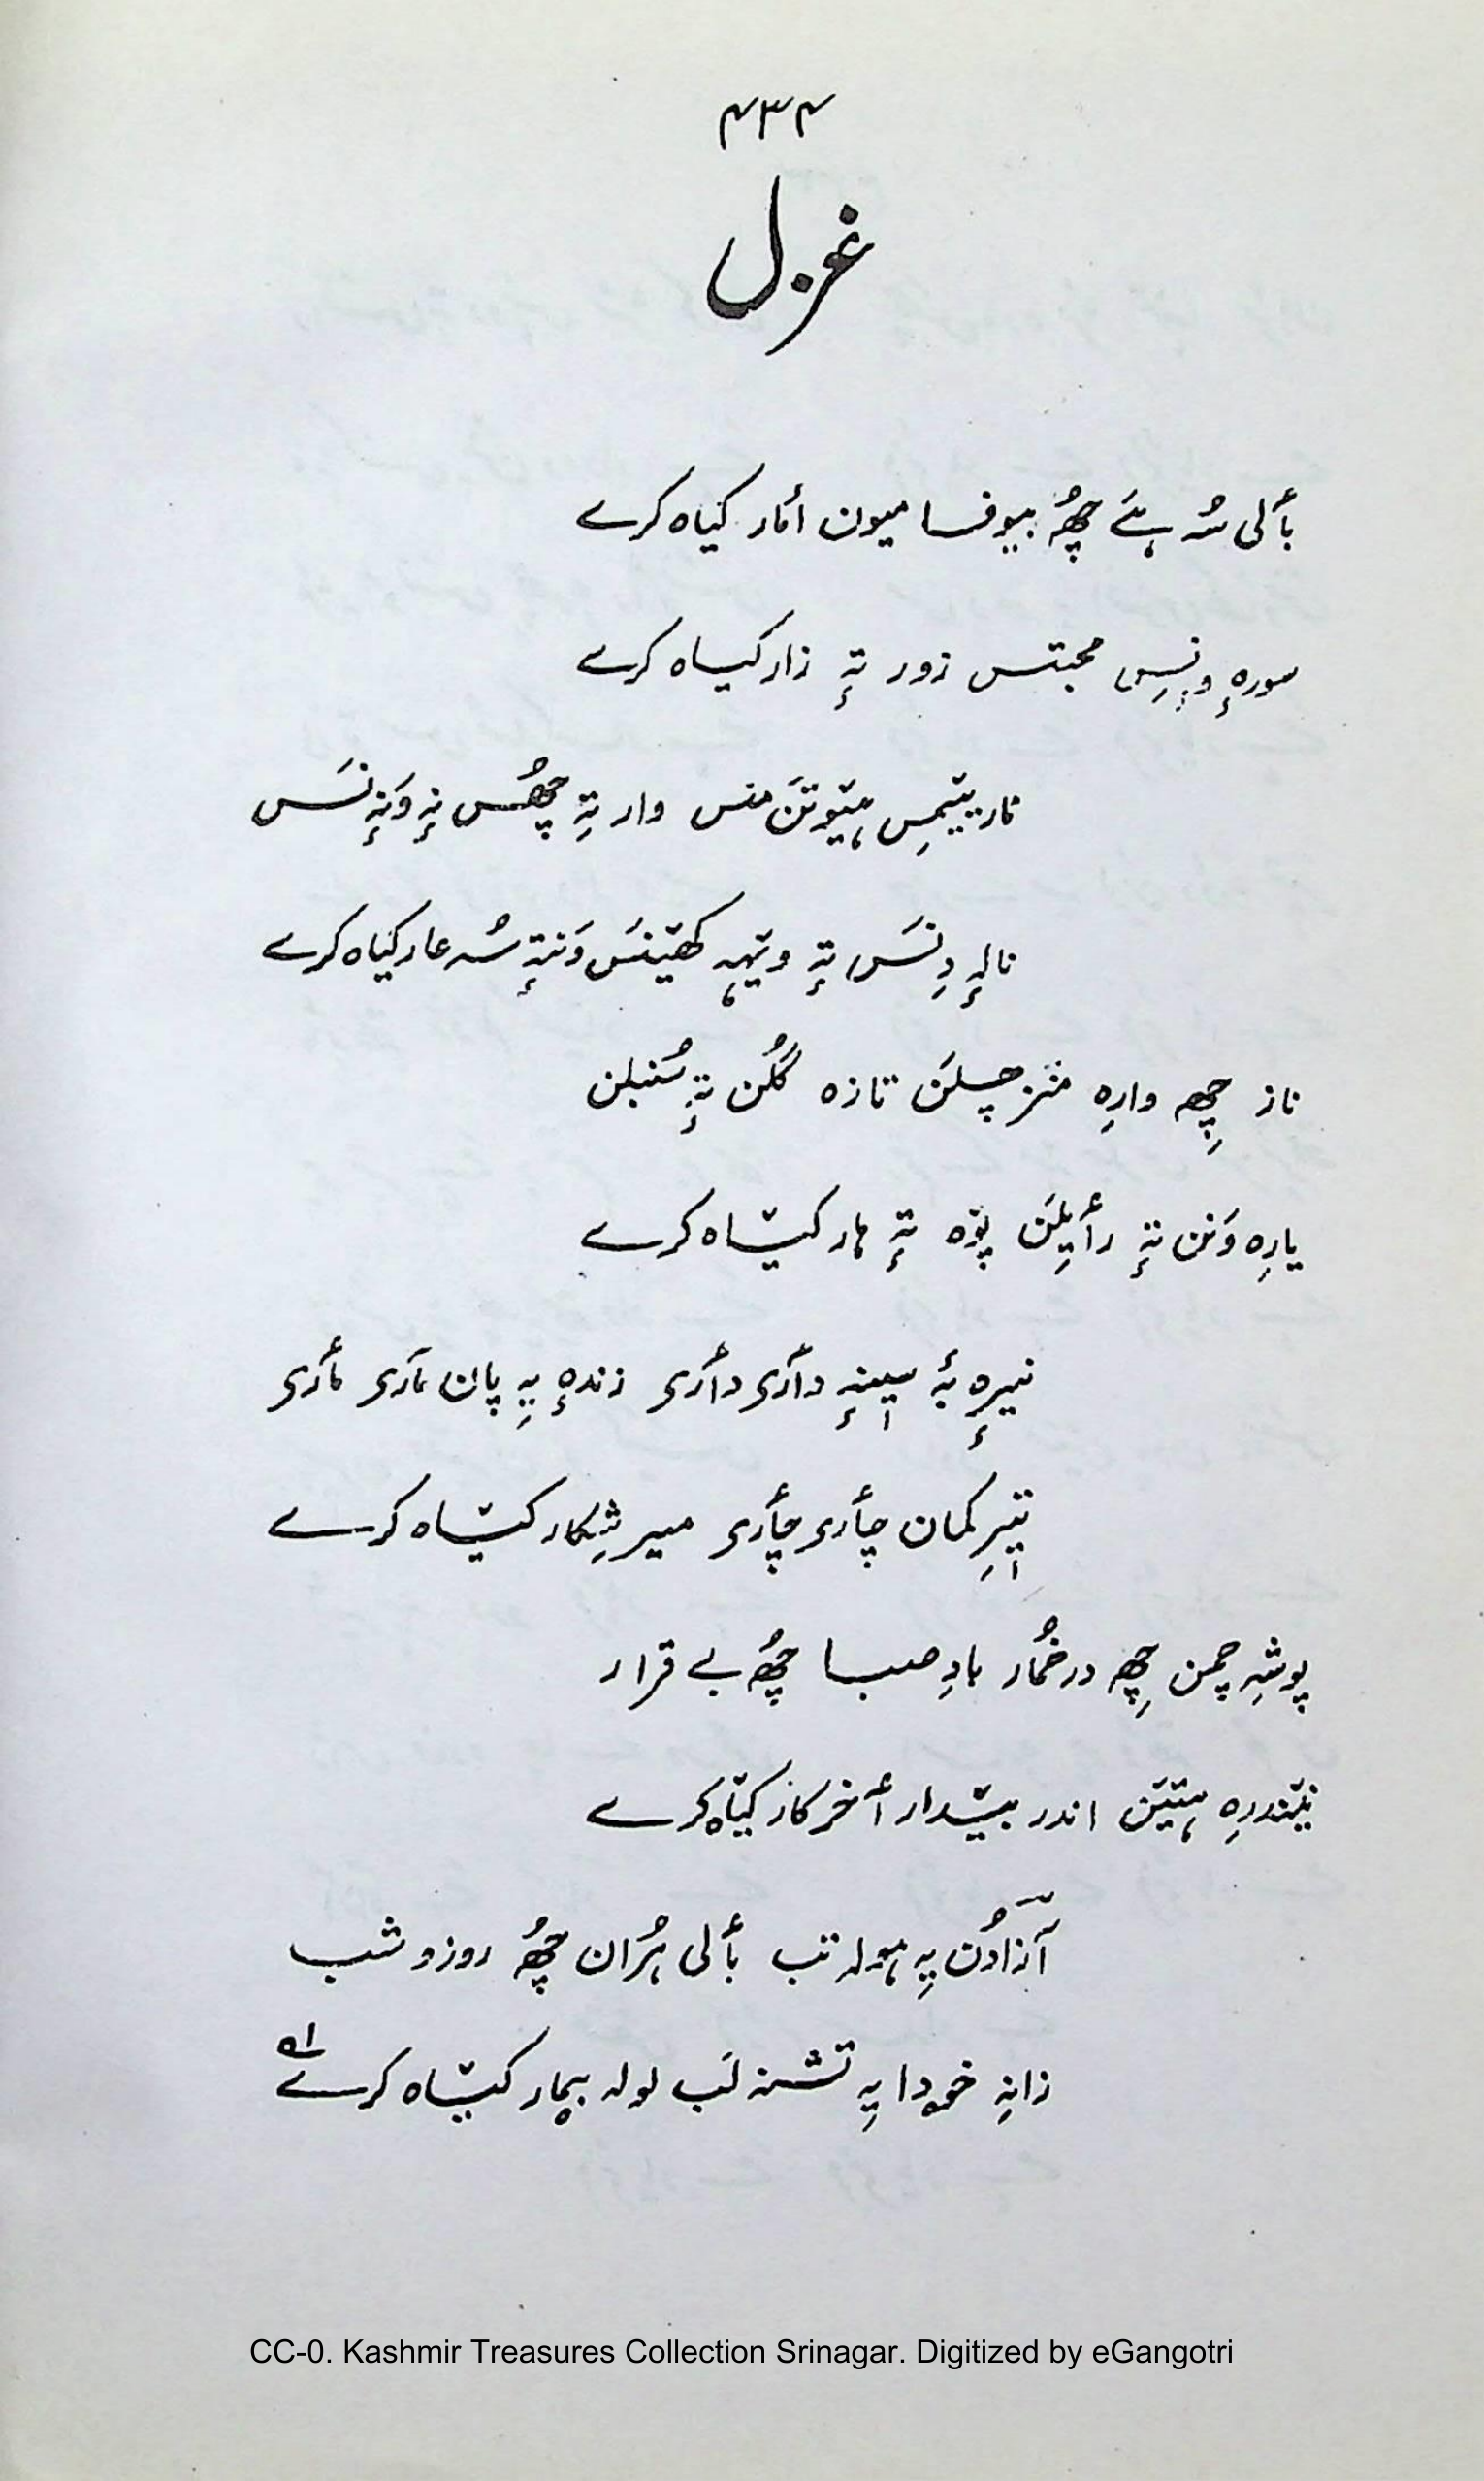 ۴۳۴
غزل
بٲلی سُہ ہے چھُ بیوفا میون أمار کیاہ کرے
سورِہ محبتس زور تہٕ زار کیاہ کرے
نار ییٚمِس ہیٚوتَن منس وار تہِ چھُس نہٕ وَنہٕ نَس
نالہٕ دِنَس تہٕ ویٚہہ کھیٚنَس وَنتہٕ سُہ عار کیاہ کرے
ناز چھِ وارِہ منز چلَن تازہ گُلن تہٕ سُنبلن
یارِہ وَنن تہٕ رأیلَن پوٚہ تہٕ ہار کیٚاہ کرے
نیرِہٕ بۂ سیٖنہٕ دٲری دٲری زندہٕ یہِ پان مٲری مٲری
تیٖرِ کمان چٲری چٲری میر شِکار کیٚاہ کرے
پوشہِ چمن چھِ در خُمار بادِ صبا چھُ بے قرار
نیٚندرِہ ہیٚتیٚن اندر بیٚدار أخر کار کیٚاہ کرے
آزادُن یہِ ہولہ تب بٲلی ہُران چھُ روز و شب
زانہِ خۄدا یہِ تشنہ لَب لولہ بیمار کیٚاہ کرے ۵۱
CC-0. Kashmir Treasures Collection Srinagar. Digitized by eGangotri